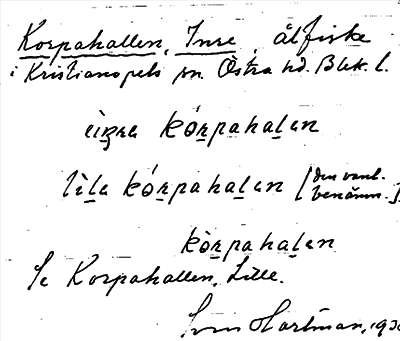 Korpahallen, Inre, ålfiske
i Kristianopels sn. Östra hd. Blek. l.
ìṇrа kórpahalen
lìla kórpahalen [den vanl.
benämn.]
kòrpahalen
Se Korpahallen, Lille.
Sven Hartman, 193